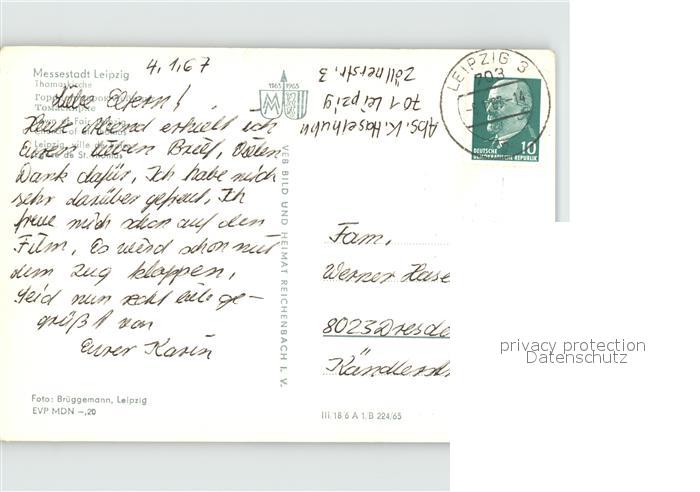 4.1.67
Messestadt Leipzig
Thomaskirche
Liebe Eltern!
Heut Abend erhielt ich
Euren lieben Brief, Vielen
Dank dafür, Ich habe mich
sehr darüber gefreut, Ich
freue mich schon auf den
Film, Es wird schon mit
dem Zug klappen,
Seid nun recht lieb ge-
grüßt von
Eurer Karin
Foto: Brüggemann, Leipzig
EVP MDN –,20
1165 1965
M
VEB BILD UND HEIMAT REICHENBACH I. V.
Abs. K. Haselhuhn
701 Leipzig
Zöllnerstr. 3
LEIPZIG 3
703
DEUTSCHE
DEMOKRATISCHE REPUBLIK
10
Fam.
Werner Hase
8023 Dresde
Kändlerstr
III/18/6 A 1/B 224/65
privacy protection
Datenschutz